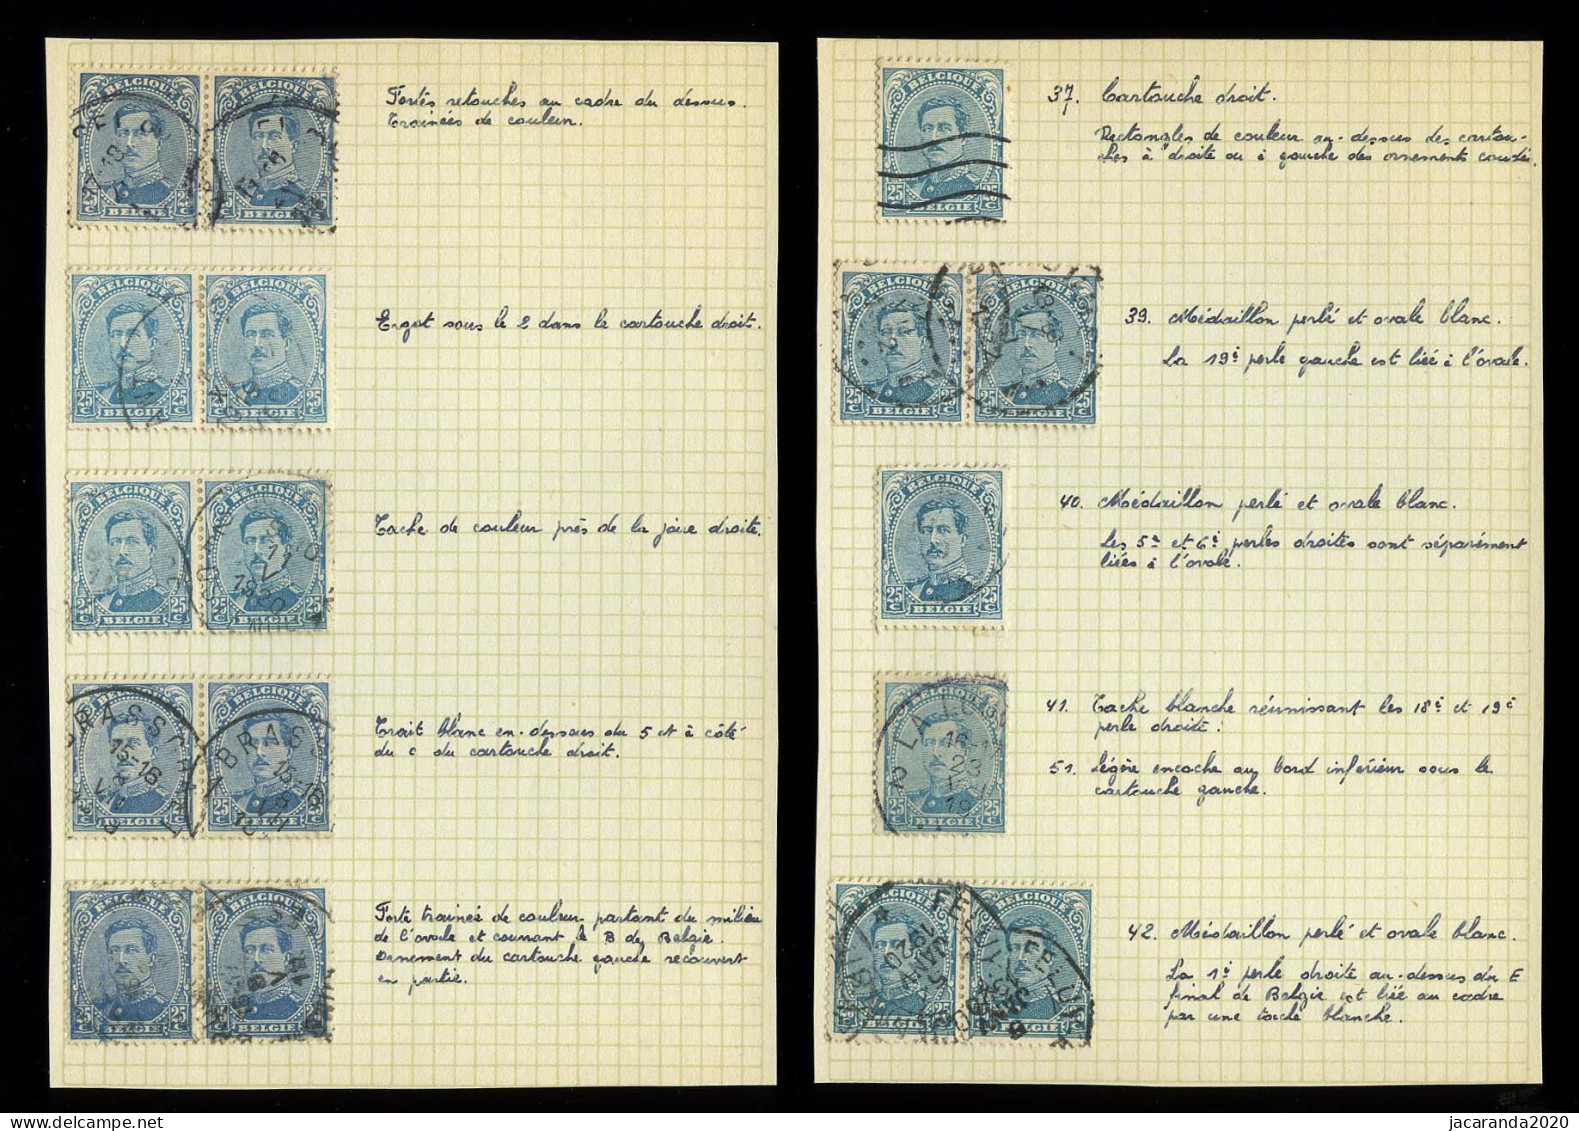 Fortes retouches au cadre du dessus.
Trainées de couleur.
Ergot sous le 2 dans le cartouche droit.
Tache de couleur près de la joire droite.
Trait blanc en-dessous du 5 et à côté
du c du cartouche droit.
Forte trainée de couleur partant du milieu
de l'ovale et couvrant le B de Belgie.
Ornement du cartouche gauche recouvert
en partie.
37. Cartouche droit.
Rectangles de couleur au-dessus des cartou-
ches à droite ou à gauche des ornement coudés.
39. Médaillon perlé et ovale blanc.
La 19è perle gauche est liée à l'ovale.
40. Médaillon perlé et ovale blanc.
Les 5è et 6è perles droites sont séparément
liées à l'ovale.
41. Tache blanche réunissant les 18è et 19è
perle droite.
51. Légère encoche au bord inférieur sous le
cartouche gauche.
42. Médaillon perlé et ovale blanc.
La 1è perle droite au-dessus du E
final de Belgie est liée au cadre
par une tache blanche.
BELGIQUE BELGIQUE
25 C 25 C 25 C 25 C
BELGIE BELGIE
BELGIQUE BELGIQUE
25 C 25 C 25 C 25 C
BELGIE BELGIE
BELGIQUE BELGIQUE
25 C 25 C 25 C 25 C
BELGIE BELGIE
1920
BELGIQUE BELGIQUE
BRASS
15-16
25 C 25 C
BELGIE BELGIE
BELGIQUE BELGIQUE
25 C 25 C
BELGIE BELGIE
BELGIQUE
25 C 25 C
BELGIE
BELGIQUE BELGIQUE
25 C 25 C
BELGIE BELGIE
BELGIQUE
25 C 25 C
BELGIE
BELGIQUE
25 C 25 C
BELGIE
BELGIQUE BELGIQUE
FELUY
1920
BELGIE BELGIE
jacaranda2020